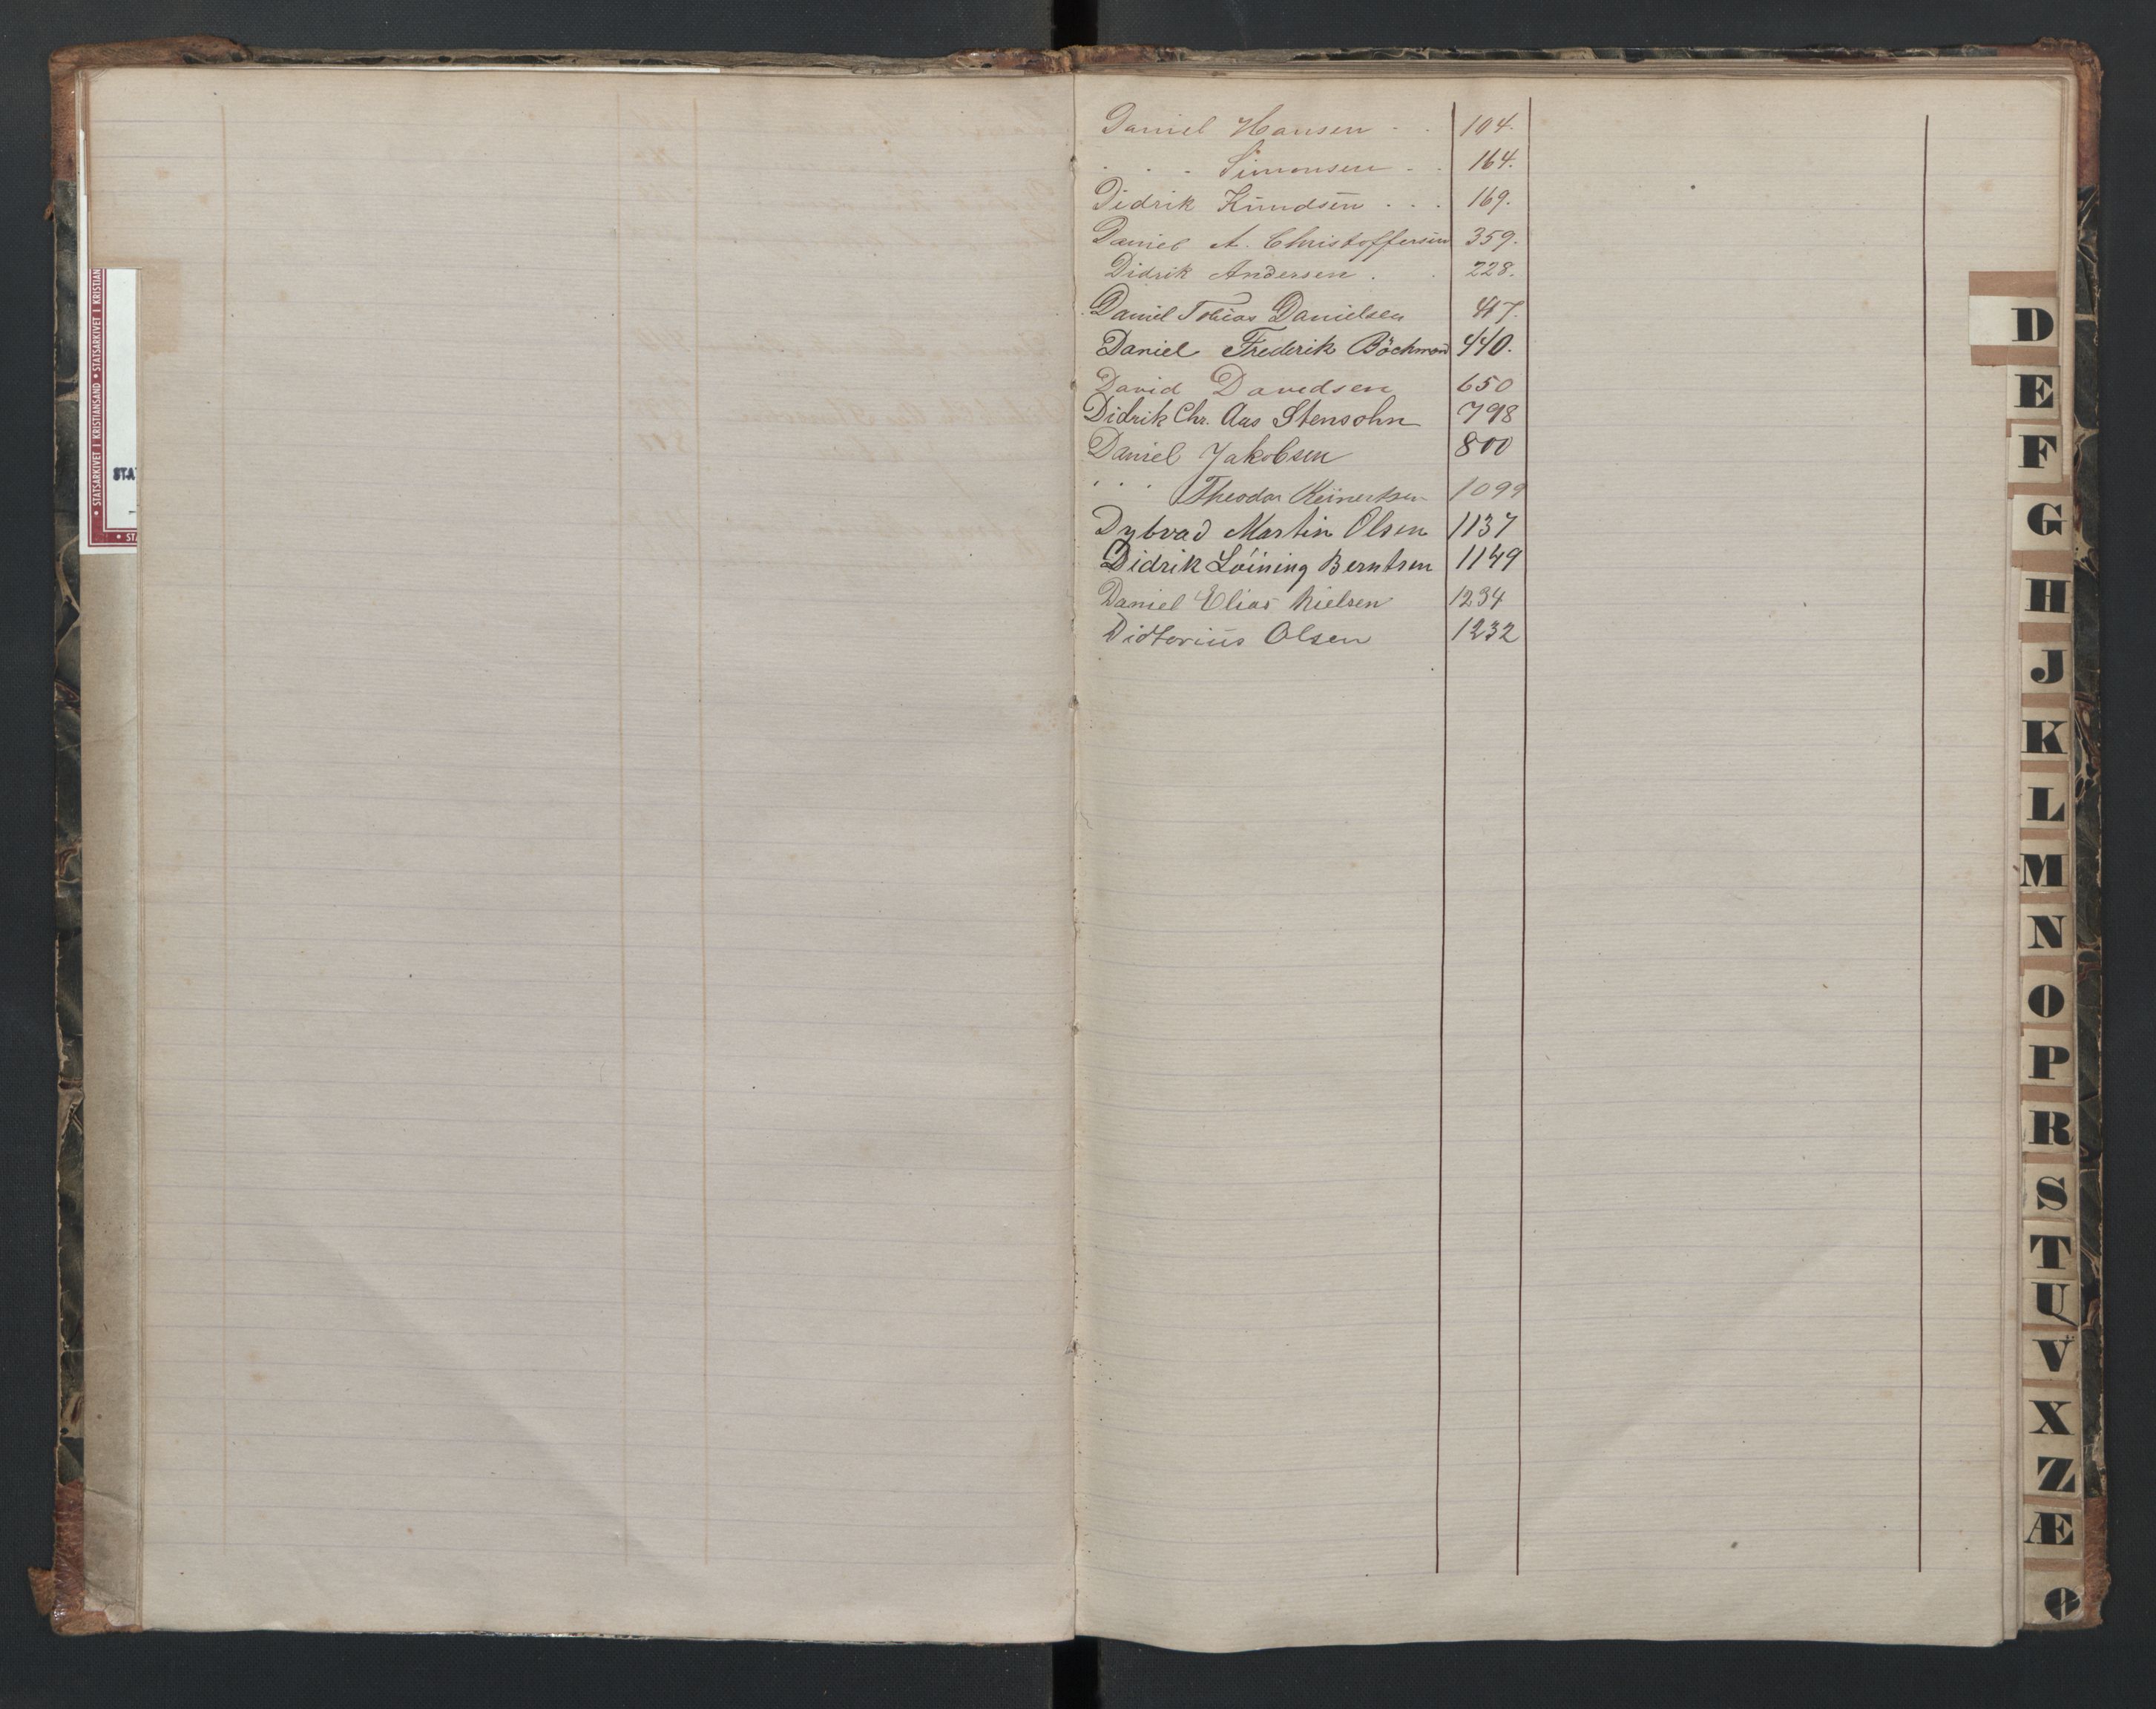 Daniel Hansen . . 104.
. . . Simonsen . . 164.
Didrik Knudsen . . . 169.
Daniel A. Christoffersen 359.
Didrik Andersen . . 228.
Daniel Tobias Danielsen 417.
Daniel Frederik Böchman 440.
David Davidsen 650
Didrik Chr. Aas Stensohn 798
Daniel Jakobsen 800
. . . Theodor Reinertsen 1099
Dybvad Martin Olsen 1137
Didrik Löining Berntsen 1149
Daniel Elias Nielsen 1234
Didtorius Olsen 1232
D
E
F
G
H
J
K
L
M
N
O
P
R
S
T
U
V
X
Z
Æ
Ø
• STATSARKIVET I KRISTIANSAND • STATSARKIVET I KRISTIAN
STA
• STA